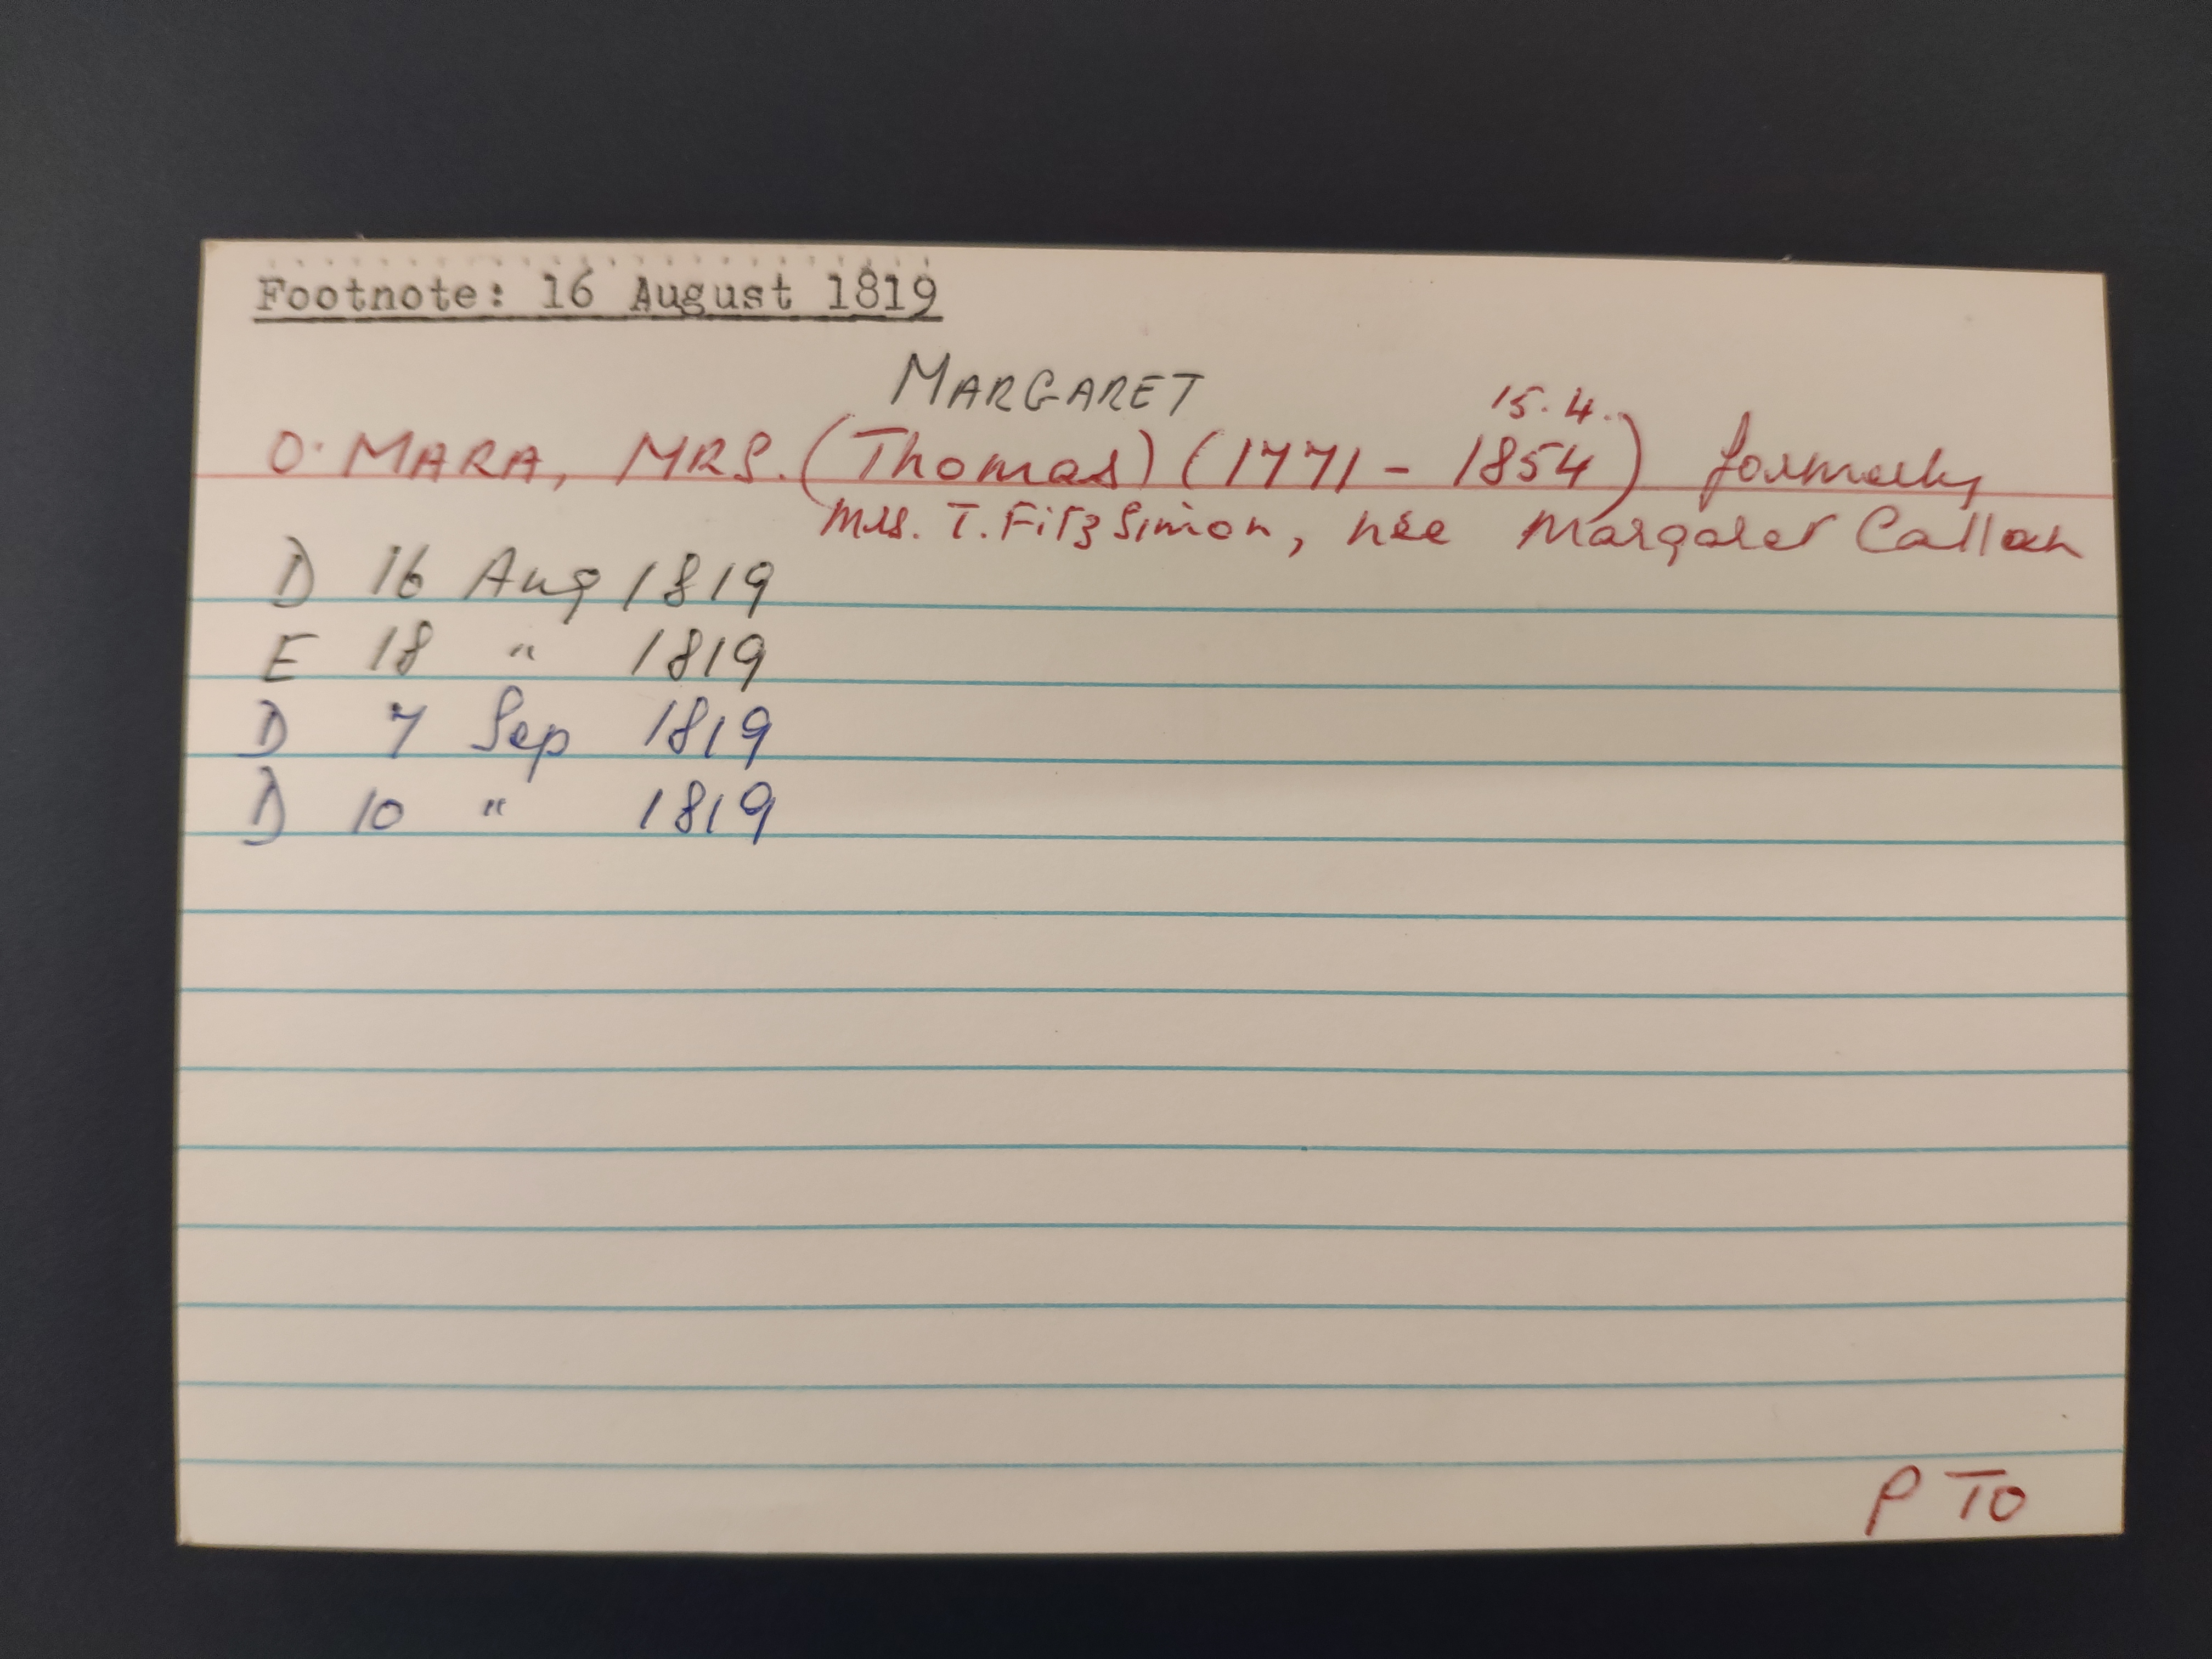 Footnote: 16 August 1819
MARGARET
15.4.
O'MARA, MRS. (Thomas) (1771 - 1854) formerly
Mrs. T. FitzSimon, née Margaret Callan
D 16 Aug 1819
E 18 " 1819
D 7 Sep 1819
D 10 " 1819
PTO